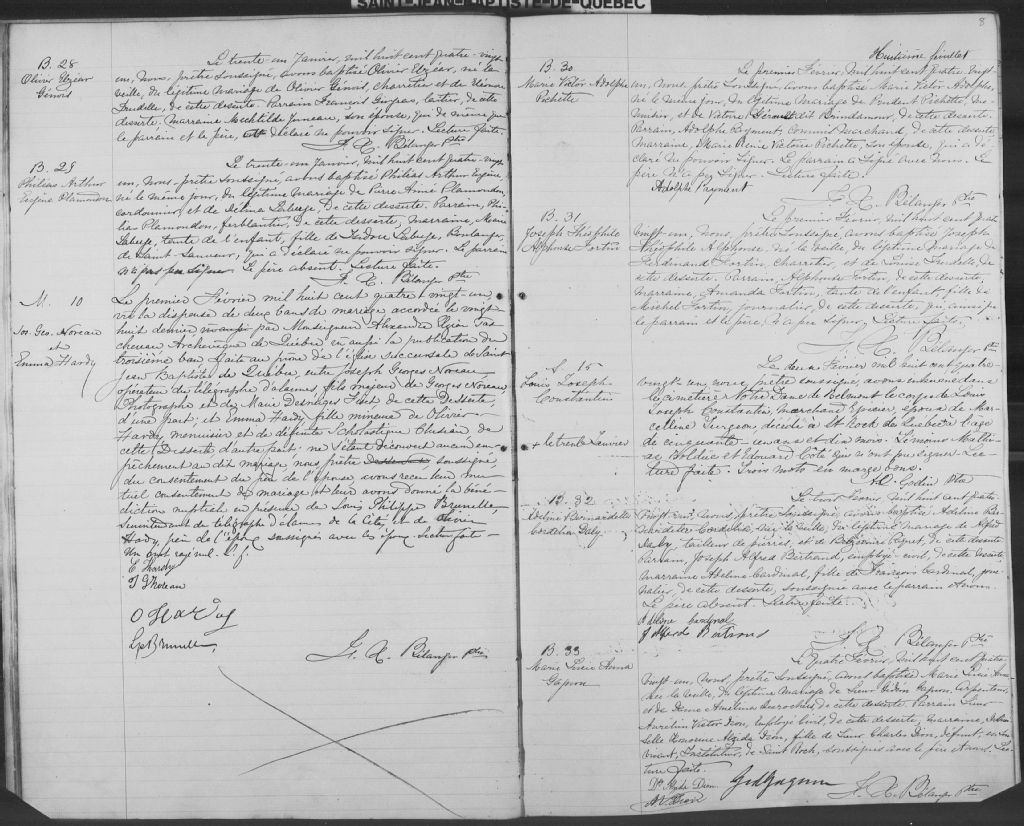 SAINT-JEAN-BAPTISTE-DE-QUÉBEC
B. 28
Olivier Elzéar
Génois
Le trente-un Janvier, mil huit cent quatre-vingt
un, Nous, prêtre soussigné, avons baptisé Olivier Elzéar, né la
veille, du légitime mariage de Olivier Génois, charretier et de Léonore
Trudelle, de cette desserte. Parrain François Gingras, cartier, de cette
desserte. Marraine Mechtilde Juneau, son épouse, qui de même que
le parrain et le père, a déclaré ne pouvoir signer. Lecture faite.
F. X. Bélanger Ptre
B. 29
Philéas Arthur
Eugène Plamondon
Le trente-un Janvier, mil huit cent quatre-vingt
un, Nous, prêtre soussigné, avons baptisé Philéas Arthur Eugène,
né le même jour, du légitime mariage de Pierre Aimé Plamondon,
cordonnier, et de Zélima Laberge, de cette desserte. Parrain, Phi-
léas Plamondon, ferblantier, de cette desserte, marraine, Marie
Laberge, tante de l'enfant, fille de Isidore Laberge, Boulanger,
de Saint-Sauveur, qui a déclaré ne pouvoir signer. Le parrain
n'a pas pu signer. Le père absent. Lecture faite.
F. X. Bélanger Ptre
M. 10
Jos. Geo. Noreau
et
Emma Hardy
Le premier Février mil huit cent quatre vingt-un
vu la dispense de deux bans de mariage accordée le vingt
huit dernier par Monseigneur Alexandre Elzéar Tas
chereau Archevêque de Québec, vu aussi la publication du
troisième ban faite au prône de l'église succursale de Saint
Jean Baptiste de Québec, entre Joseph Georges Noreau,
opérateur du télégraphe d'alarmes fils majeur de Georges Noreau,
Photographe et de Marie Desneiges Huot de cette Desserte,
d'une part; et Emma Hardy fille mineure de Olivier
Hardy, menuisier et de défunte Scholastique de
cette Desserte d'autre part: ne s'étant découvert aucun em-
pêchement au dit mariage, nous, prêtre soussigné,
du consentement du père de l'épouse avons reçu leur mu-
tuel consentement de mariage et leur avons donné la béné-
diction nuptiale en présence de Louis Philippe Brunelle
surintendant du télégraphe d'alarmes de la Cité, et de Olivier
Hardy, père de l'épouse soussignés avec les époux. Lecture faite
Un mot rayé nul.
E Hardy
J G Noreau
O Hardy
L P Brunelle
F. X. Bélanger Ptre
8
Huitième feuillet
B. 30
Marie Victor Adolphe
Pichette
Le premier Février, mil huit cent quatre vingt
un, Nous, prêtre soussigné, avons baptisé Marie Victor Adolphe,
né le même jour, du légitime mariage de Prudent Pichette, me-
nuisier, et de Victoire Girault dit Brindamour, de cette desserte.
Parrain, Adolphe Payment, Commis Marchand, de cette desserte
marraine, Marie Reine Victoire Pichette, son épouse, qui a dé-
claré ne pouvoir signer. Le parrain a signé avec nous. Le
père n'a pu signer. Lecture faite.
Adolphe Payment
F. X. Bélanger Ptre
B. 31
Joseph Théophile
Alphonse Fortin
Le premier Février, mil huit cent quatre
vingt un, Nous, prêtre soussigné, avons baptisé Joseph
Théophile Alphonse, né la veille, du légitime mariage de
Ferdinand Fortin, charretier, et de Louise Trudelle, de
cette desserte. Parrain, Alphonse Fortin, de cette desserte,
marraine, Amanda Fortin, tante de l'enfant, fille de
Michel Fortin, journalier, de cette desserte, qui ainsi que
le parrain et le père n'a pu signer. Lecture faite.
F. X. Bélanger Ptre
S. 15
Louis Joseph
Constantin
+ le trente Janvier
Le deux Février mil huit cent quatre-
vingt-un, nous, prêtre soussigné, avons inhumé dans
le cimetière Notre Dame de Belmont le corps de Louis
Joseph Constantin, marchand Epicier, époux de Mar-
celline Turgeon, décédé à St Roch de Québec à l'âge
de cinquante-un ans et dix mois. Témoins Mathi-
as Bolduc et Edouard Côté qui n'ont pu signer. Lec-
ture faite. Trois mots en marge bons.
Godin Ptre
B. 32
Adeline Bernardette
Cordélia Daly
Le trois Février, mil huit cent quatre
vingt-un, Nous, prêtre soussigné, avons baptisé Adeline Ber-
nardette Cordélia, née la veille, du légitime mariage de Alfred
Daly, tailleur de pierres, et de Paquet, de cette desserte.
Parrain, Joseph Alfred Bertrand, employé-civil, de cette desserte,
marraine Adeline Cardinal, fille de François Cardinal, jour-
nalier, de cette desserte, soussignés avec le parrain et nous.
Le père absent. Lecture faite.
Adeline Cardinal
J Alfred Bertrand
F. X. Bélanger Ptre
B. 33
Marie Lucie Anna
Gagnon
Le quatre Février, mil huit cent quatre
vingt-un, Nous, prêtre soussigné, avons baptisé Marie Lucie Anna
née la veille, du légitime mariage de Sieur Gédéon Gagnon, Arpenteur,
et de Dame Amelina Desrochers, de cette desserte. Parrain Sieur
Aurélien Victor Dion, employé Civil, de cette desserte, marraine, Demoi-
selle Honorine Alzida Dion, fille de Sieur Charles Dion, défunt, en son
vivant, Instituteur, de Saint Roch, soussignés avec le père et nous. Lec-
ture faite.
Dlle Alzida Dion
A V Dion
Géd Gagnon
F. X. Bélanger Ptre